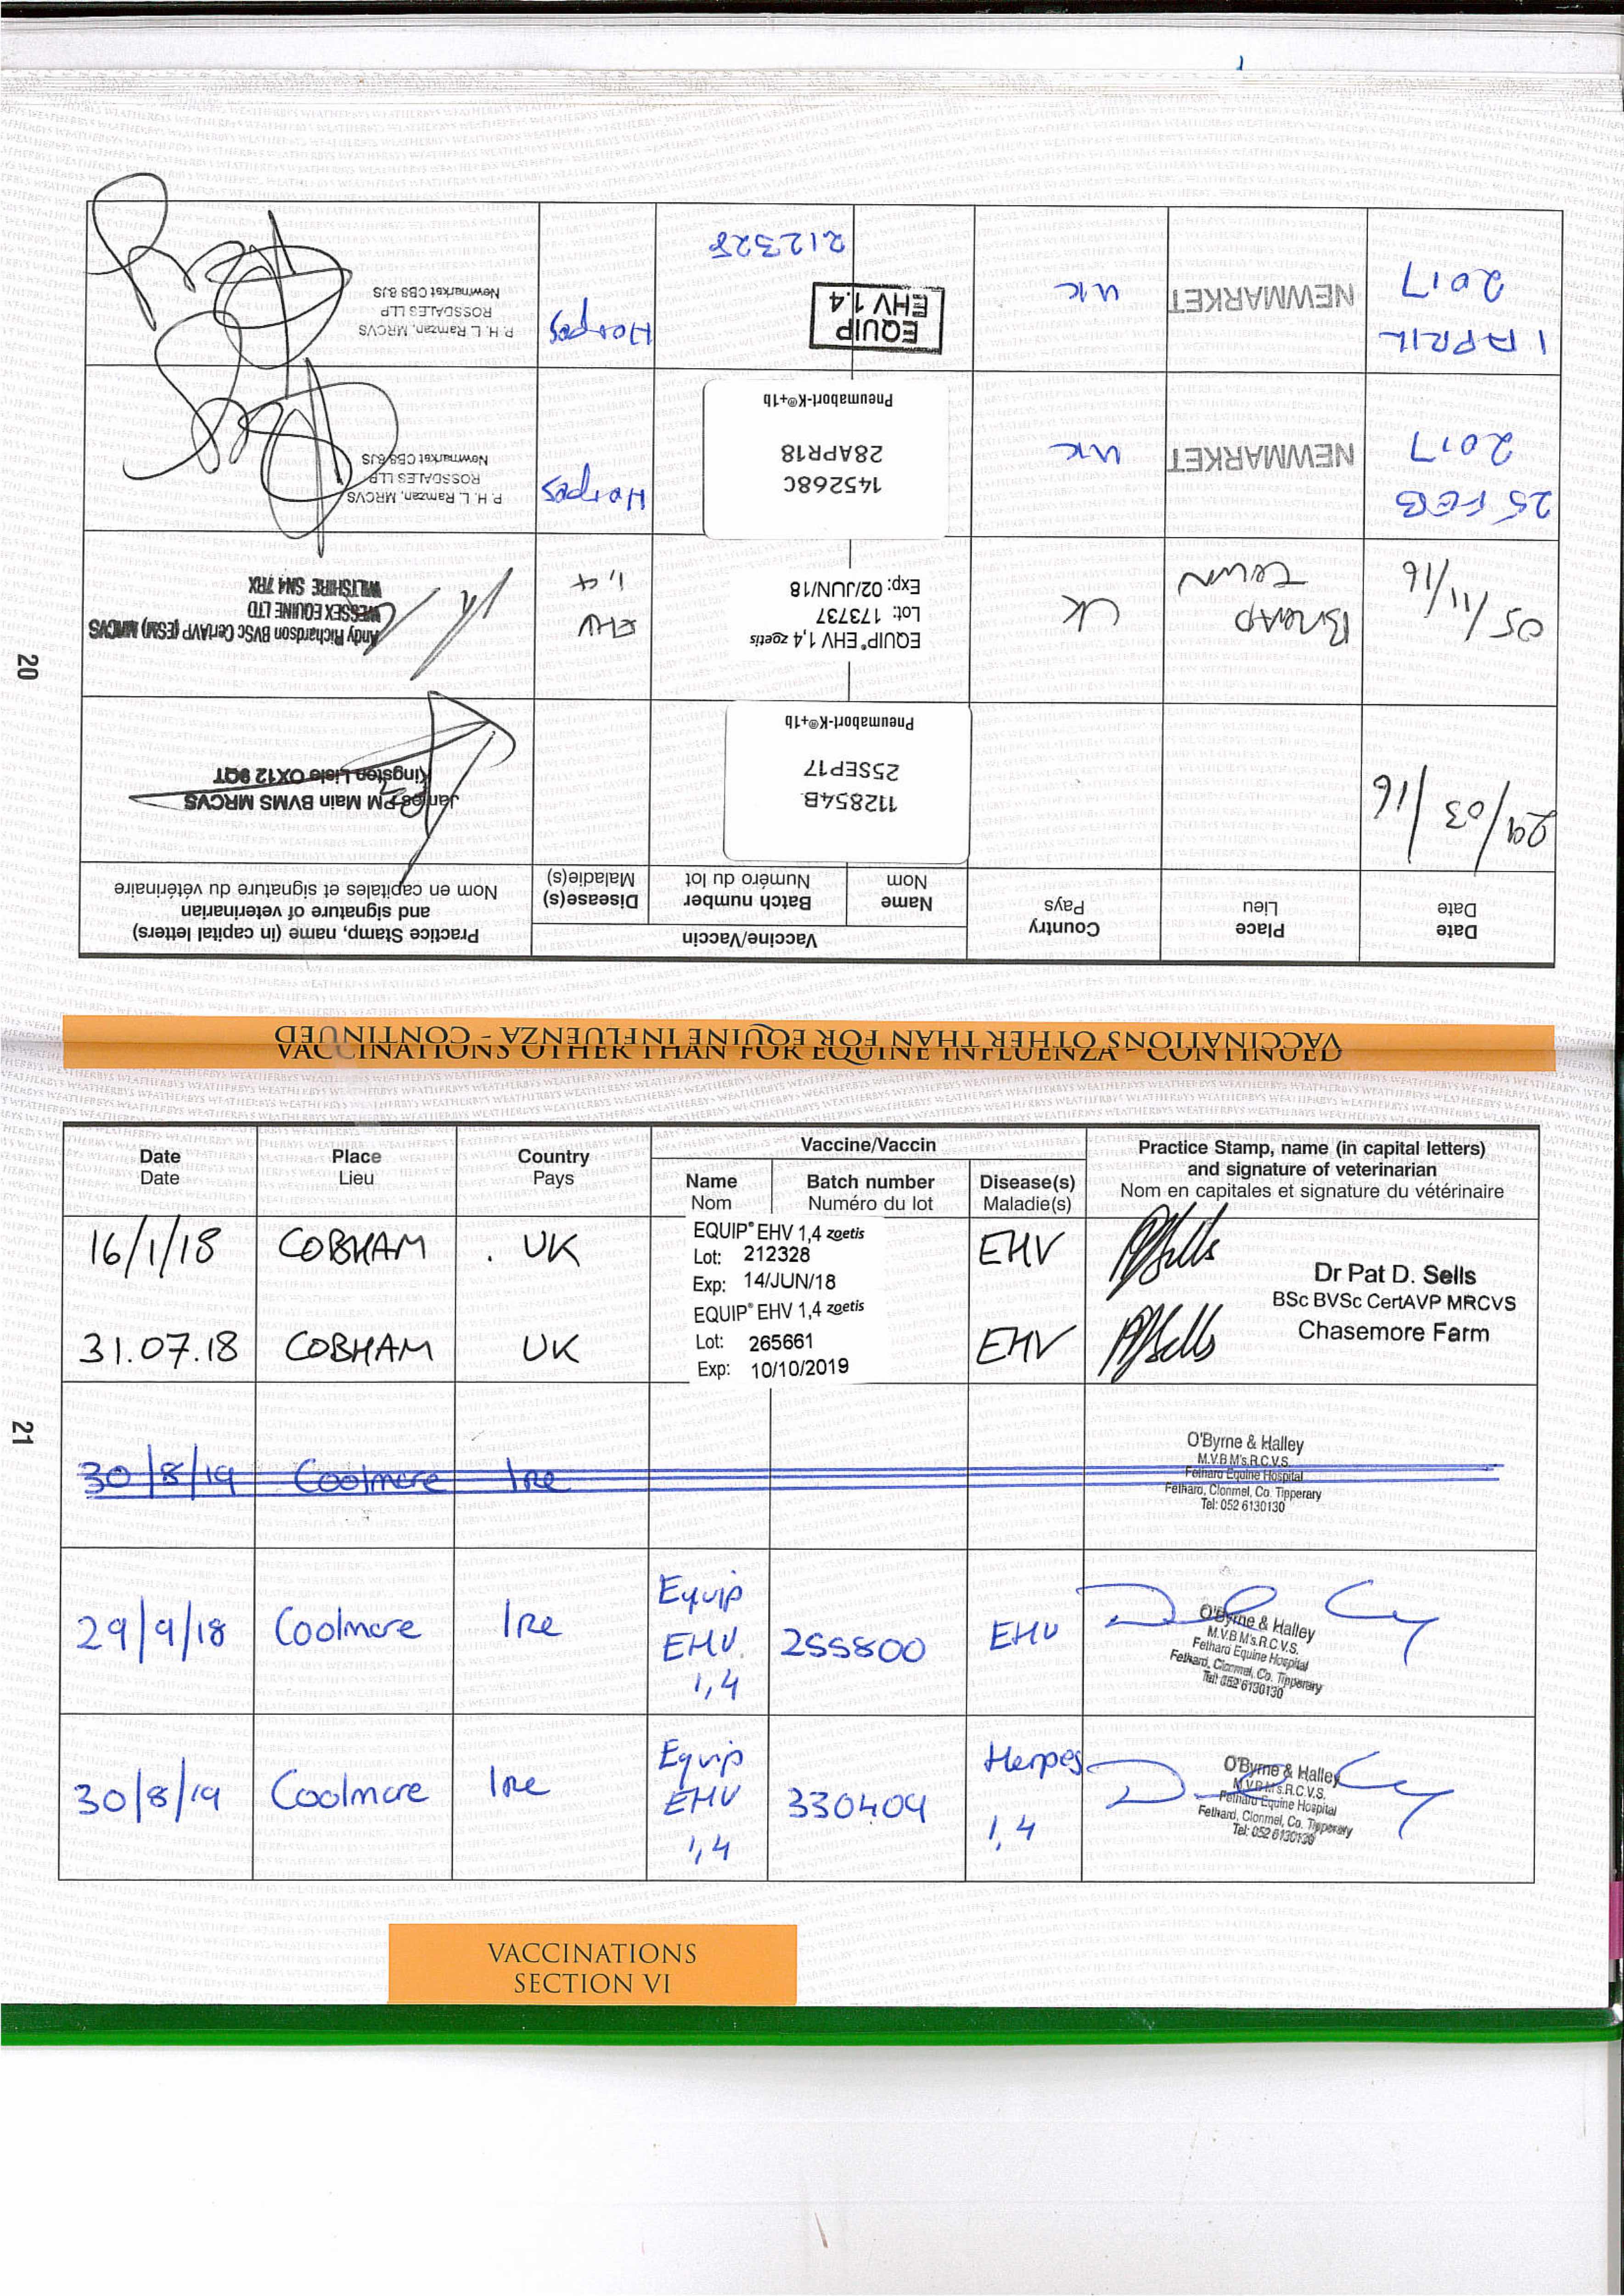 VACCINATIONS OTHER THAN FOR EQUINE INFLUENZA - CONTINUED
Date
Date
Place
Lieu
Country
Pays
Vaccine/Vaccin
Name
Nom
Batch number
Numéro du lot
Disease(s)
Maladie(s)
Practice Stamp, name (in capital letters)
and signature of veterinarian
Nom en capitales et signature du vétérinaire
29/03/16
112854B
25SEP17
Pneumabort-K®+1b
James PM Main BVMS MRCVS
Kingston Lisle OX12 9QT
05/11/16
UK
EQUIP® EHV 1,4 zoetis
Lot: 173737
Exp: 02/JUN/18
EHV
1,4
Andy Richardson BVSc CertAVP (ESM) MRCVS
WESSEX EQUINE LTD
WILTSHIRE SN4 7RX
25 FEB
2017
NEWMARKET
UK
145268C
28APR18
Pneumabort-K®+1b
Herpes
P. H. L. Ramzan, MRCVS
ROSSDALES LLP
Newmarket CB8 8JS
1 APRIL
2017
NEWMARKET
UK
EQUIP
EHV 1.4
212328
Herpes
P. H. L. Ramzan, MRCVS
ROSSDALES LLP
Newmarket CB8 8JS
20
VACCINATIONS OTHER THAN FOR EQUINE INFLUENZA - CONTINUED
Date
Date
Place
Lieu
Country
Pays
Vaccine/Vaccin
Name
Nom
Batch number
Numéro du lot
Disease(s)
Maladie(s)
Practice Stamp, name (in capital letters)
and signature of veterinarian
Nom en capitales et signature du vétérinaire
16/1/18
COBHAM
UK
EQUIP® EHV 1,4 zoetis
Lot: 212328
Exp: 14/JUN/18
EHV
PDSells
Dr Pat D. Sells
BSc BVSc CertAVP MRCVS
Chasemore Farm
31.07.18
COBHAM
UK
EQUIP® EHV 1,4 zoetis
Lot: 265661
Exp: 10/10/2019
EHV
PDSells
30/8/19
Coolmore
Ire
O'Byrne & Halley
M.V.B M's.R.C.V.S.
Fethard Equine Hospital
Fethard, Clonmel, Co. Tipperary
Tel: 052 6130130
29/9/18
Coolmore
Ire
Equip
EHV
1,4
255800
EHV
O'Byrne & Halley
M.V.B M's.R.C.V.S.
Fethard Equine Hospital
Fethard, Clonmel, Co. Tipperary
Tel: 052 6130130
30/8/19
Coolmore
Ire
Equip
EHV
1,4
330409
Herpes
1,4
O'Byrne & Halley
M.V.B M's.R.C.V.S.
Fethard Equine Hospital
Fethard, Clonmel, Co. Tipperary
Tel: 052 6130130
21
VACCINATIONS
SECTION VI